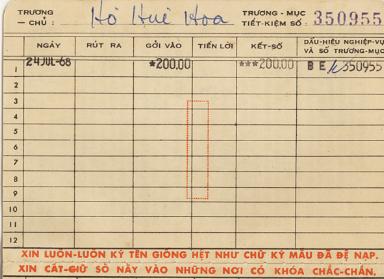 TRƯƠNG — CHỦ : Hồ Huê Hoa TRƯƠNG - MỤC TIẾT-KIỆM SỐ : 350955
NGÀY RÚT RA GỞI VÀO TIỀN LỜI KẾT-SỐ DẤU-HIỆU NGHIỆP-VỤ VÀ SỐ TRƯƠNG-MỤC
1 24 JUL-68 *200.00 ***200.00 B E 350955
2
3
4
5
6
7
8
9
10
11
12
XIN LUÔN-LUÔN KÝ TÊN GIỐNG HỆT NHƯ CHỮ KÝ MẪU ĐÃ ĐỆ NẠP.
XIN CẤT-GIỮ SỔ NẦY VÀO NHỮNG NƠI CÓ KHÓA CHẮC-CHẮN.